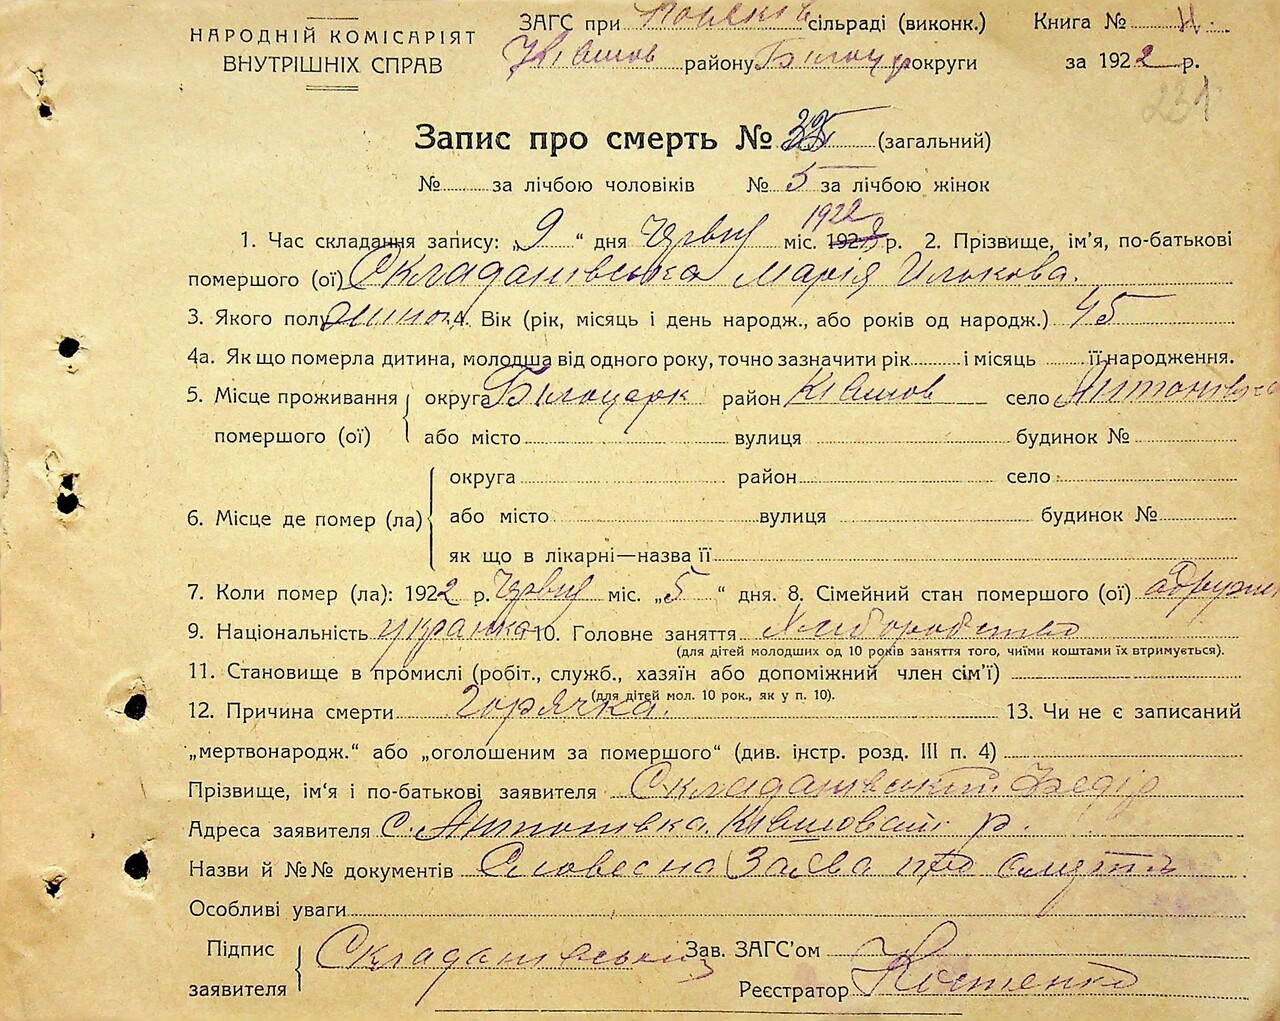 НАРОДНІЙ КОМІСАРІЯТ
ВНУТРІШНІХ СПРАВ
ЗАГС при сільраді (виконк.) Книга №
району Білоцр округи за 1922 р.
231
Запис про смерть № (загальний)
№ за лічбою чоловіків № 5 за лічбою жінок
1922
1. Час складання запису: „9“ дня Червня міс. 192 р. 2. Прізвище, ім’я, по-батькові
помершого (ої) Складанівська Марія Илькова.
3. Якого полу 4. Вік (рік, місяць і день народж., або років од народж.) 45
4а. Як що померла дитина, молодша від одного року, точно зазначити рік і місяць її народження.
5. Місце проживання помершого (ої) округа Білоцерк район Ківшов село Антонівка
або місто вулиця будинок №
6. Місце де помер (ла) округа район село
або місто вулиця будинок №
як що в лікарні—назва її
7. Коли помер (ла): 1922 р. Червня міс. „5“ дня. 8. Сімейний стан помершого (ої)
9. Національність украінка 10. Головне заняття Хлиборобство
(для дітей молодших од 10 років заняття того, чиїми коштами їх втримується).
11. Становище в промислі (робіт., служб., хазяїн або допоміжний член сім’ї)
(для дітей мол. 10 рок., як у п. 10).
12. Причина смерти горячка. 13. Чи не є записаний
„мертвонародж.“ або „оголошеним за помершого“ (див. інстр. розд. III п. 4)
Прізвище, ім’я і по-батькові заявителя Складанівський Федір
Адреса заявителя с. Антонівка. р.
Назви й №№ документів Словесна Заява про смерть
Особливі уваги
Підпис заявителя Складанівський Зав. ЗАГС’ом
Реєстратор Костенко